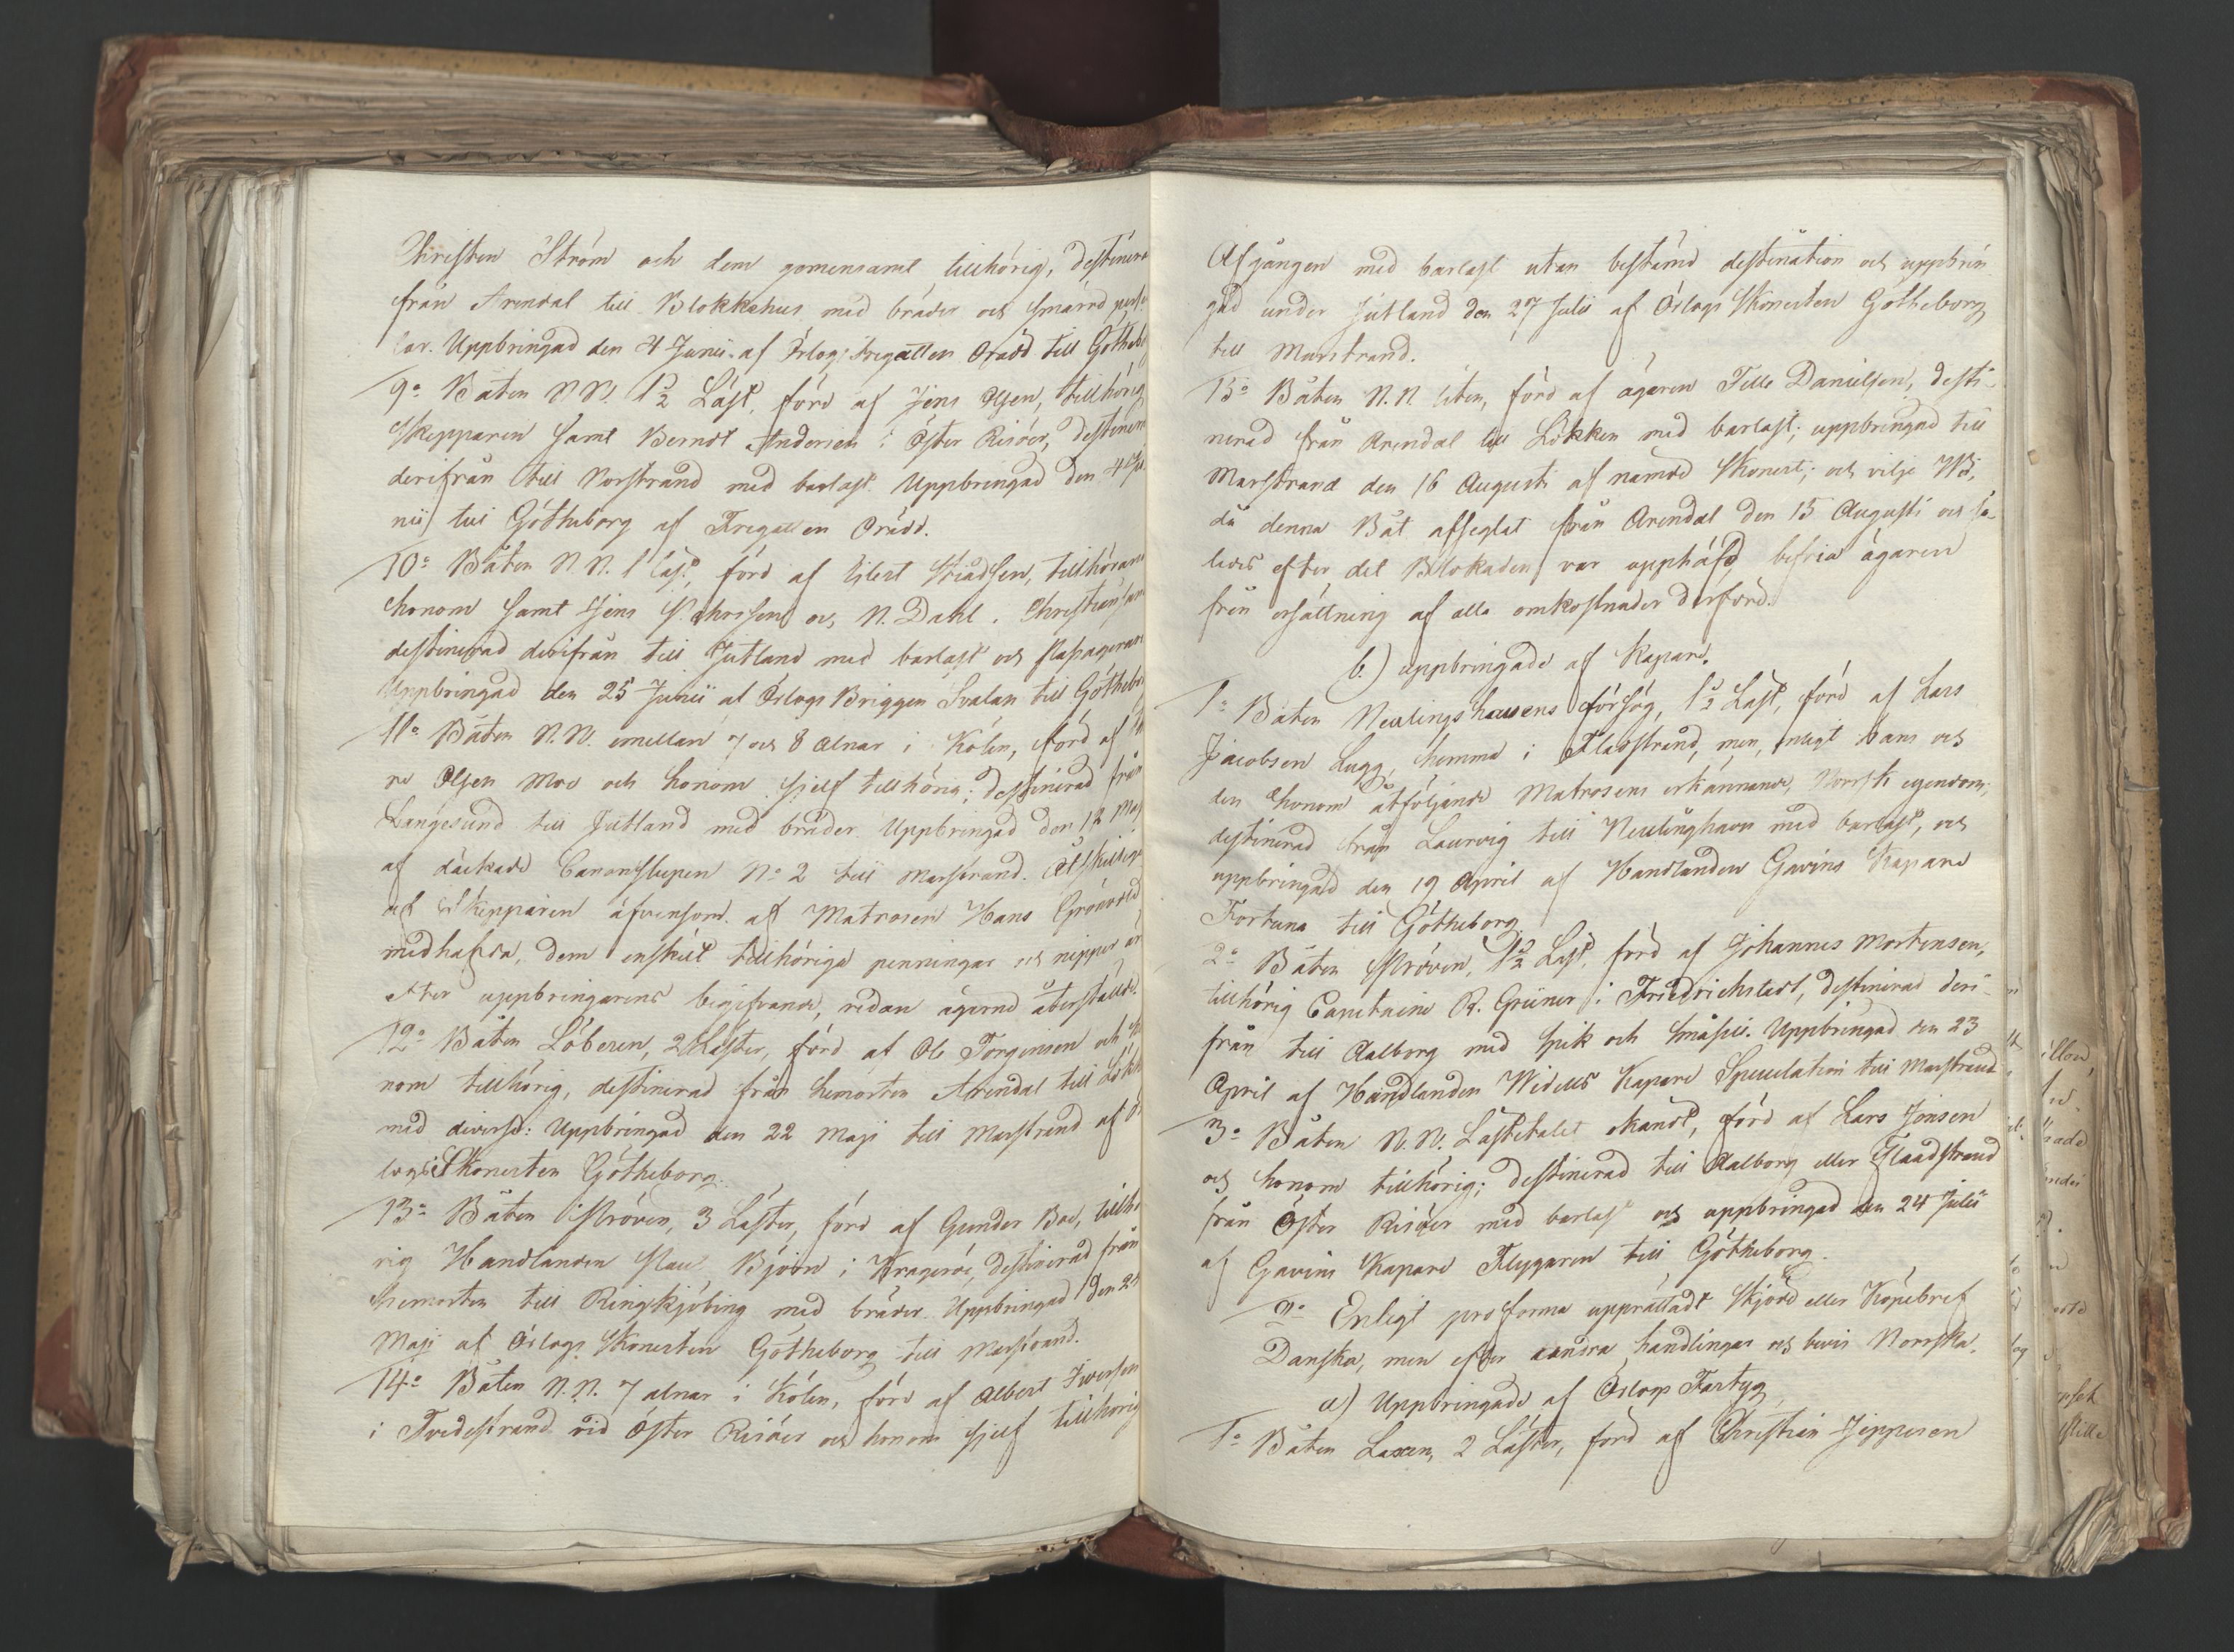 Christen Ström och dem gemensamt tillhörig, destinera
från Arendal till Blokkehus med bräder och smärre perse
lar. Uppbringad den 4 Junii af Örlogs Fregatten Orädd till Götheb
9o Båten N.N. 1½ Läst, förd af Jens Olsen, tillhörig
Skepparen samt Berndt Andersen i Öster Risöer, destinera
derifrån till Norstrand med barlast. Uppbringad den 4 Ju
nii till Götheborg af Fregatten Orädd.
10o Båten N.N. 1 läst, förd af Eilert Knudsen, tillhöran
honom samt Jens och N. Dahl i Christiansand
destinerad derifrån till Jutland med barlast och Passagerare
Uppbringad den 25 Junii af Örlogs Briggen Svalan till Göthebo
11o Båten N.N. emellan 7 och 8 alnar i Kölen, förd af
re Olsen Moe och honom sjelf tillhörig; destinerad från
Langesund till Jutland med bräder. Uppbringad den 12 Maj
af däckade Canonslupen No 2 till Marstrand. Åtskillige
af Skepparen äfvensom af Matrosen Hans Grönvold
medhafda, dem enskilt tillhöriga penningar och nipper är
efter uppbringarens begifvande, redan ägarne återstälde.
12o Båten Löberen, 2 Läster, förd af Ole Torgensen och ho
nom tillhörig, destinerad från hemorten Arendal till Lökk
med diverse: Uppbringad den 22 Maji till Marstrand af Ör
logs Skonerten Götheborg.
13o Båten Pröven, 3 Läster, förd af Gunder Boe, tillhö
rig Handlanden Paul Björn i Krageröe, destinerad från
hemorten till Ringkjöbing med bräder. Uppbringad den 25
Maji af Örlogs Skonerten Götheborg till Marstrand.
14o Båten N.N. 7 alnar i Kölen, förd af Albert Iversen
i Tvedestrand vid Öster Risöer och honom sjelf tillhörig
Afgången med barlast utan bestämd destination och uppbrin
gad under Jutland den 27 Julii af Örlogs Skonerten Götheborg
till Marstrand.
15o Båten N.N. liten, förd af ägaren Telle Danielsen, desti-
nerad från Arendal till Lökken med barlast; uppbringad till
Marstrand den 16 Augusti af nämde Skonert; och vilje Wi,
då denna Båt afseglat från Arendal den 15 Augusti och så-
ledes efter det Blokaden var upphäfd, befria ägaren
från ersättning af alla omkostnader derföre.
b.) uppbringade af Kapare.
1o Båten Neulingshavens försög, 1½ Läst, förd af Lars
Jacobsen Lugg, hemma i Fladstrand, men, enligt hans och
den honom åtföljande Matrosens erkännande, Norrsk egendom;
destinerad från Laurvig till Neulinghavn med barlast, och
uppbringad den 19 April af Handlanden Gavins Kapare
Fortuna till Götheborg.
2o Båten Pröven, 1½ Läst, förd af Johannes Mortensen,
tillhörig Capitaine R. Grüner i Friedrichstadt, destinerad deri-
från till Aalborg med spik och småspik. Uppbringad den 23
April af Handlanden Widells Kapare Speculation till Marstrand
3o Båten N.N. Lästetalet okändt, förd af Lars Jonsen
och honom tillhörig; destinerad till Aalborg eller Flaadstrand
från Öster Risöer med barlast och uppbringad den 24 Julii
af Gavins Kapare Flygaren till Götheborg.
2o Enligt proforma upprättadt Skjöde eller Köpebref
Danska, men efter andra handlingar och bevis Norrska.
a) Uppbringade af Örlogs Fartyg
1o Båten Laxen, 2 Läster, förd af Christian Jeppesen